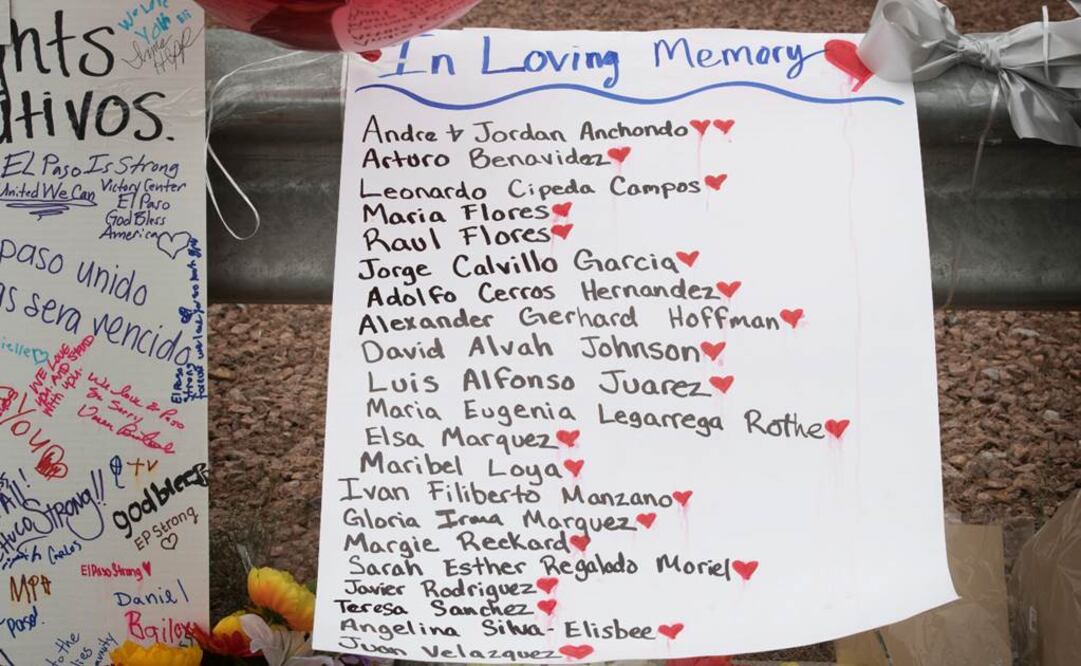 In Loving Memory
Andre & Jordan Anchondo
Arturo Benavidez
Leonardo Cipeda Campos
Maria Flores
Raul Flores
Jorge Calvillo Garcia
Adolfo Cerros Hernandez
Alexander Gerhard Hoffman
David Alvah Johnson
Luis Alfonso Juarez
Maria Eugenia Legarrega Rothe
Elsa Marquez
Maribel Loya
Ivan Filiberto Manzano
Gloria Irma Marquez
Margie Reckard
Sarah Esther Regalado Moriel
Javier Rodriguez
Teresa Sanchez
Angelina Silva-Elisbee
Juan Velazquez
We Love
You
EL Paso Is Strong
United We Can
Victory Center
El Paso
God Bless
America
paso unido
sera vencido
El Paso
Strong
WE LOVE
YOU AND STAND
With YOU.
We love El Paso
So Sorry
god bless
EP Strong
El Paso Strong
Daniel